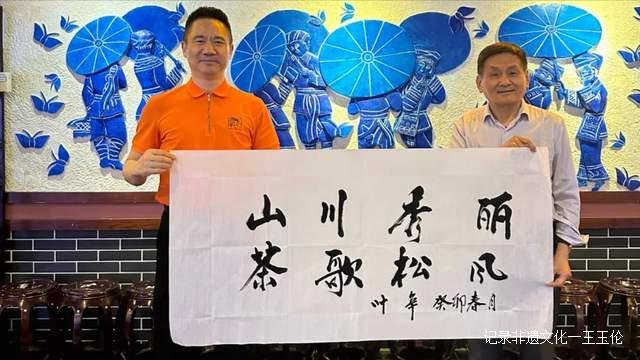 山川秀丽
茶歌松风
叶年 癸卯春月
记录非遗文化一王玉伦